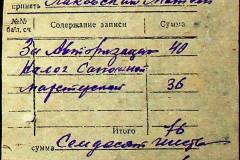 принять Маковский Матвей
№№ бал. сч Содержание записи Сумма
За Авторизацию 40
Налог Сапожной
мастерской 36
Итого 76
сумма Семдесят шесть